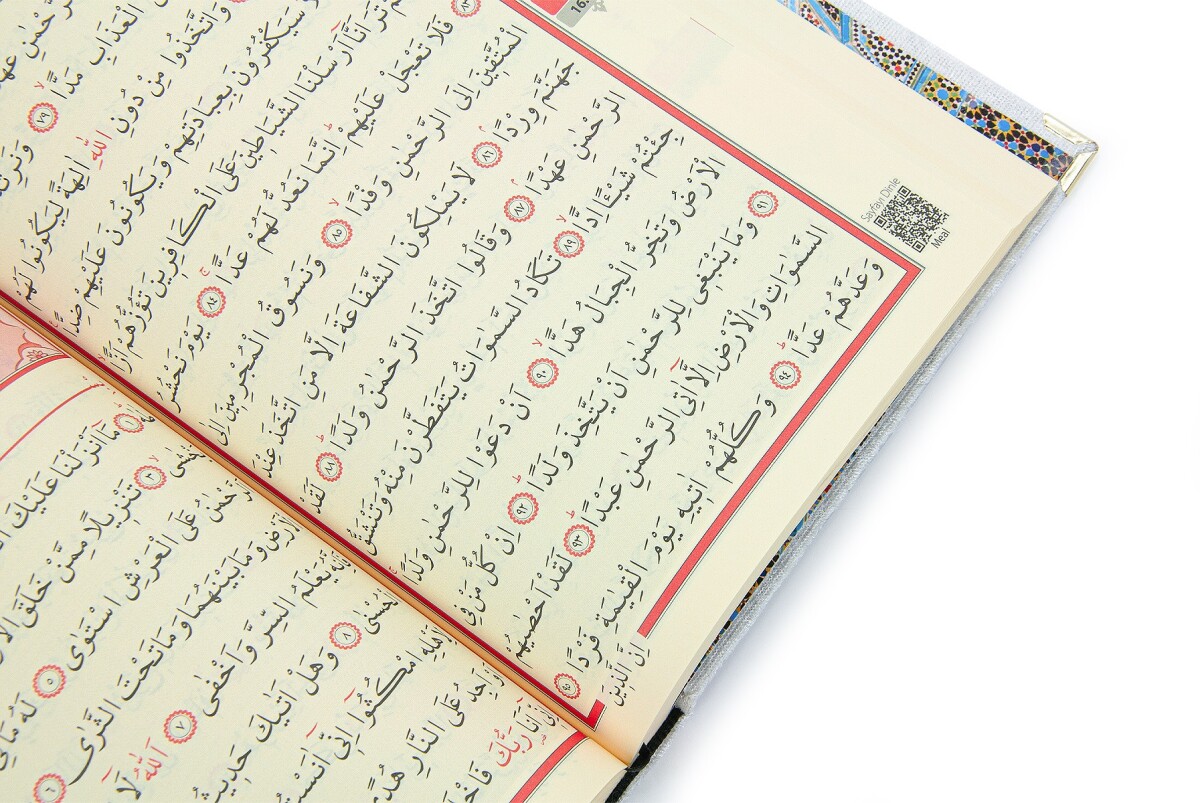 16.
الْعَذَابِ مَدًّاۙ ﴿٧٩﴾ وَنَرِثُهُ
وَاتَّخَذُوا مِنْ دُونِ اللّٰهِ اٰلِهَةً لِيَكُونُوا لَهُمْ
سَيَكْفُرُونَ بِعِبَادَتِهِمْ وَيَكُونُونَ عَلَيْهِمْ ضِدًّا
تَرَ اَنَّٓا اَرْسَلْنَا الشَّيَاطٖينَ عَلَى الْكَافِرٖينَ تَؤُزُّهُمْ اَزًّاۙ ﴿٨٣﴾
فَلَا تَعْجَلْ عَلَيْهِمْۜ اِنَّمَا نَعُدُّ لَهُمْ عَدًّاۚ ﴿٨٤﴾ يَوْمَ نَحْشُرُ
الْمُتَّقٖينَ اِلَى الرَّحْمٰنِ وَفْدًاۙ ﴿٨٥﴾ وَنَسُوقُ الْمُجْرِمٖينَ اِلٰى
جَهَنَّمَ وِرْدًاۢ ﴿٨٦﴾ لَا يَمْلِكُونَ الشَّفَاعَةَ اِلَّا مَنِ اتَّخَذَ عِنْدَ
الرَّحْمٰنِ عَهْدًاۢ ﴿٨٧﴾ وَقَالُوا اتَّخَذَ الرَّحْمٰنُ وَلَدًاۜ ﴿٨٨﴾ لَقَدْ
جِئْتُمْ شَيْـًٔا اِدًّاۙ ﴿٨٩﴾ تَكَادُ السَّمٰوَاتُ يَتَفَطَّرْنَ مِنْهُ وَتَنْشَقُّ
الْاَرْضُ وَتَخِرُّ الْجِبَالُ هَدًّاۙ ﴿٩٠﴾ اَنْ دَعَوْا لِلرَّحْمٰنِ وَلَدًاۚ
﴿٩١﴾ وَمَا يَنْبَغٖي لِلرَّحْمٰنِ اَنْ يَتَّخِذَ وَلَدًاۜ ﴿٩٢﴾ اِنْ كُلُّ مَنْ فِي
السَّمٰوَاتِ وَالْاَرْضِ اِلَّٓا اٰتِي الرَّحْمٰنِ عَبْدًاۜ ﴿٩٣﴾ لَقَدْ اَحْصٰيهُمْ
وَعَدَّهُمْ عَدًّاۜ ﴿٩٤﴾ وَكُلُّهُمْ اٰتٖيهِ يَوْمَ الْقِيٰمَةِ فَرْدًا ﴿٩٥﴾
اِنَّ الَّذٖينَ
Sayfayı Dinle
Meal
﴿١﴾ مَٓا اَنْزَلْنَا عَلَيْكَ
يَخْشٰىۙ ﴿٣﴾ تَنْزٖيلًا مِمَّنْ خَلَقَ
اَلرَّحْمٰنُ عَلَى الْعَرْشِ اسْتَوٰى ﴿٥﴾ لَهُ مَا فِي
الْاَرْضِ وَمَا بَيْنَهُمَا وَمَا تَحْتَ الثَّرٰى ﴿٦﴾
يَعْلَمُ السِّرَّ وَاَخْفٰى ﴿٧﴾ اَللّٰهُ لَٓا
الْحُسْنٰى ﴿٨﴾ وَهَلْ اَتٰيكَ حَدٖيثُ
لِاَهْلِهِ امْكُثُٓوا اِنّٖٓي اٰنَسْتُ
اَوْ اَجِدُ عَلَى النَّارِ هُدًى
اِنّٖٓي اَنَا رَبُّكَ